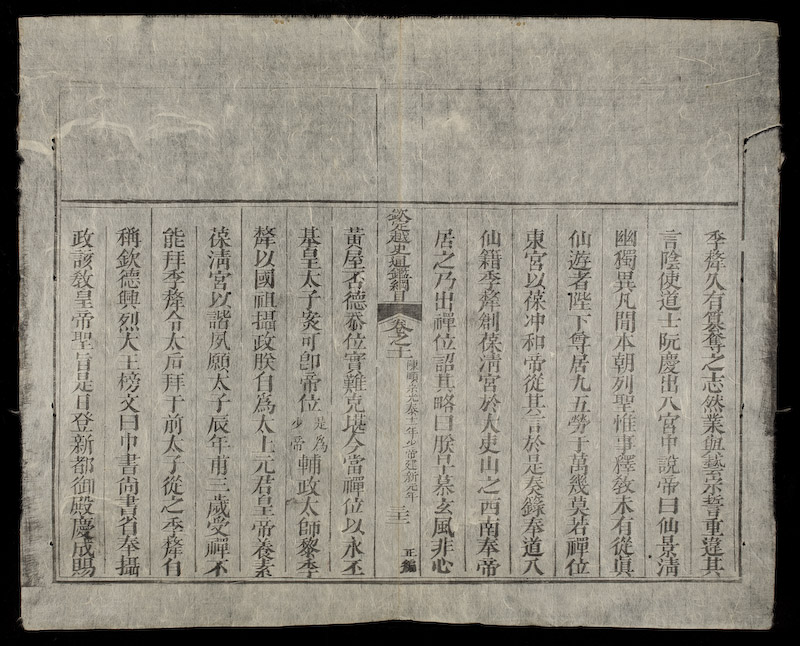 季犛久有篡奪之志然業與藝宗誓重違其
言陰使道士阮慶出入宮中說帝曰仙景淸
幽獨異凡間本朝列聖惟事釋敎未有從眞
仙遊者陛下尊居九五勞于萬幾莫若禪位
東宮以葆冲和帝從其言於是奏籙奉道入
仙籍季犛創葆淸宮於大吏山之西南奉帝
居之乃出禪位詔其略曰朕早慕玄風非心
欽定越史通鑑綱目 卷之十一 陳順宗光泰十一年少帝建新元年 三十一 正編
黃屋否德忝位實難克堪今當禪位以永丕
基皇太子𡩋可卽帝位是爲少帝輔政太師黎季
犛以國祖攝政朕自爲太上元君皇帝養素
葆淸宮以諧夙願太子辰年甫三歲受禪不
能拜季犛令太后拜于前太子從之季犛自
稱欽德興烈大王榜文曰中書尚書省奉攝
政該敎皇帝聖旨是日登新都御殿慶成賜